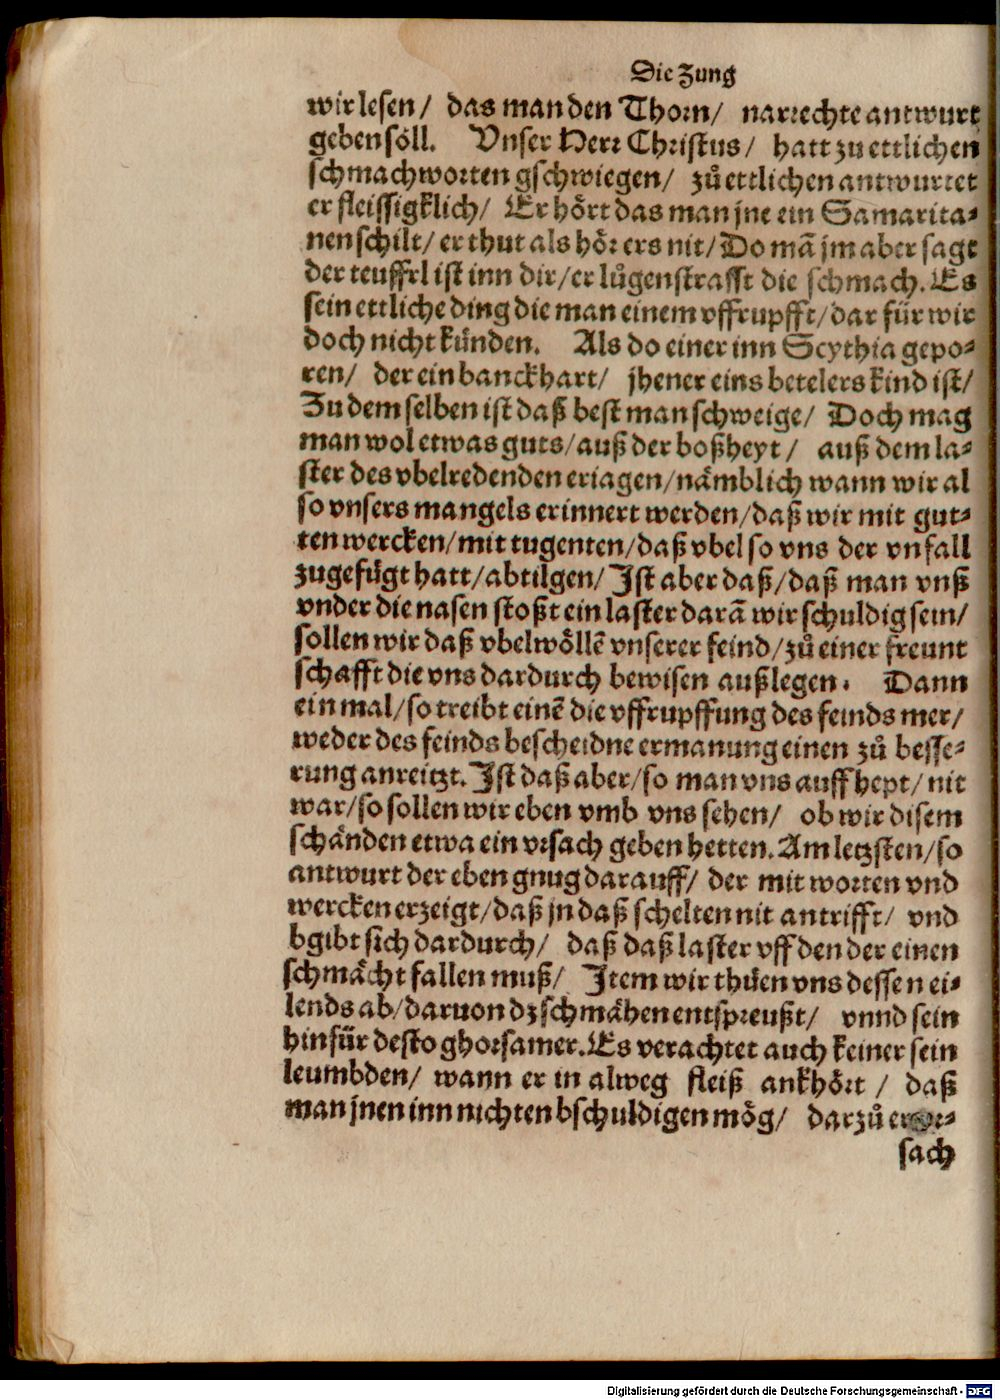 Die Zung
wir lesen/ das man den Thorn/ narrechte antwurt
geben söll. Vnser Herr Christus/ hatt zu ettlichen
schmachworten gschwiegen/ zů ettlichen antwurtet
er fleissigklich/ Er hört das man jne ein Samarita-
nen schilt/ er thut als hör ers nit/ Do mã jm aber sagt
der teuffrl ist inn dir/ er lůgenstrafft die schmach. Es
sein ettliche ding die man einem vffrupfft/ dar für wir
doch nicht künden. Als do einer inn Scythia gepo-
ren/ der ein banckhart/ jhener eins betelers kind ist/
Zu dem selben ist daß best man schweige/ Doch mag
man wol etwas guts/ auß der boßheyt/ auß dem la-
ster des vbelredenden eriagen/ nämblich wann wir al
so vnsers mangels erinnert werden/ daß wir mit gut-
ten wercken/ mit tugenten/ daß vbel so vns der vnfall
zugefügt hatt/ abtilgen/ Ist aber daß/ daß man vnß
vnder die nasen stoßt ein laster darã wir schuldig sein/
sollen wir daß vbelwöllẽ vnserer feind/ zů einer freunt
schafft die vns dardurch bewisen außlegen. Dann
ein mal/ so treibt einẽ die vffrupffung des feinds mer/
weder des feinds bescheidne ermanung einen zů besse-
rung anreitzt. Ist daß aber/ so man vns auff hept/ nit
war/ so sollen wir eben vmb vns sehen/ ob wir disem
schänden etwa ein vrsach geben hetten. Am letzsten/ so
antwurt der eben gnug darauff/ der mit worten vnd
wercken erzeigt/ daß jn daß schelten nit antrifft/ vnd
bgibt sich dardurch/ daß daß laster vff den der einen
schmächt fallen muß/ Item wir thüen vns dessen ei-
lends ab/ daruon dz schmähen entspreußt/ vnnd sein
hinfür desto ghorsamer. Es verachtet auch keiner sein
leumbden/ wann er in alweg fleiß ankhört/ daß
man jnen inn nichten bschuldigen mög/ darzů er
sach
Digitalisierung gefördert durch die Deutsche Forschungsgemeinschaft - DFG